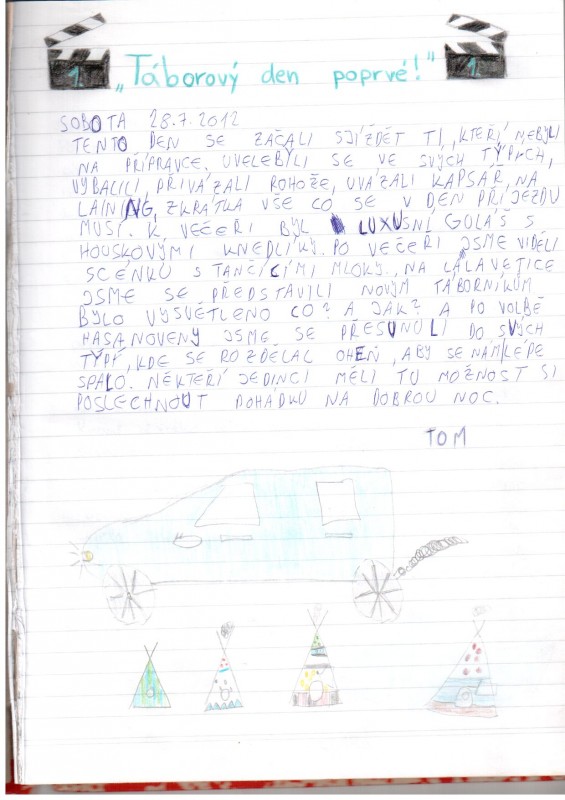 1 „Táborový den poprvé!" 1
SOBOTA 28.7.2012
TENTO DEN SE ZAČALI SJÍŽDĚT TI, KTEŘÍ NEBYLI
NA PŘÍPRAVCE. UVELEBILI SE VE SVÝCH TÝPÍCH,
VYBALILI, PŘIVÁZALI ROHOŽE, UVÁZALI KAPSÁŘ NA
LAINING, ZKRÁTKA VŠE CO SE V DEN PŘÍJEZDU
MUSÍ. K VEČEŘI BYL LUXUSNÍ GULÁŠ S
HOUSKOVÝMI KNEDLÍKY. PO VEČEŘI JSME VIDĚLI
SCÉNKU S TANČÍCÍMI MLOKY. NA LALAVETICE
JSME SE PŘEDSTAVILI NOVÝM TÁBORNÍKŮM
BYLO VYSVĚTLENO CO? A JAK? A PO VOLBĚ
HASANOVENY JSME SE PŘESUNULI DO SVÝCH
TÝPÍ, KDE SE ROZDĚLAL OHEŇ, ABY SE NÁM LÉPE
SPALO. NĚKTEŘÍ JEDINCI MĚLI TU MOŽNOST SI
POSLECHNOUT POHÁDKU NA DOBROU NOC.
TOM